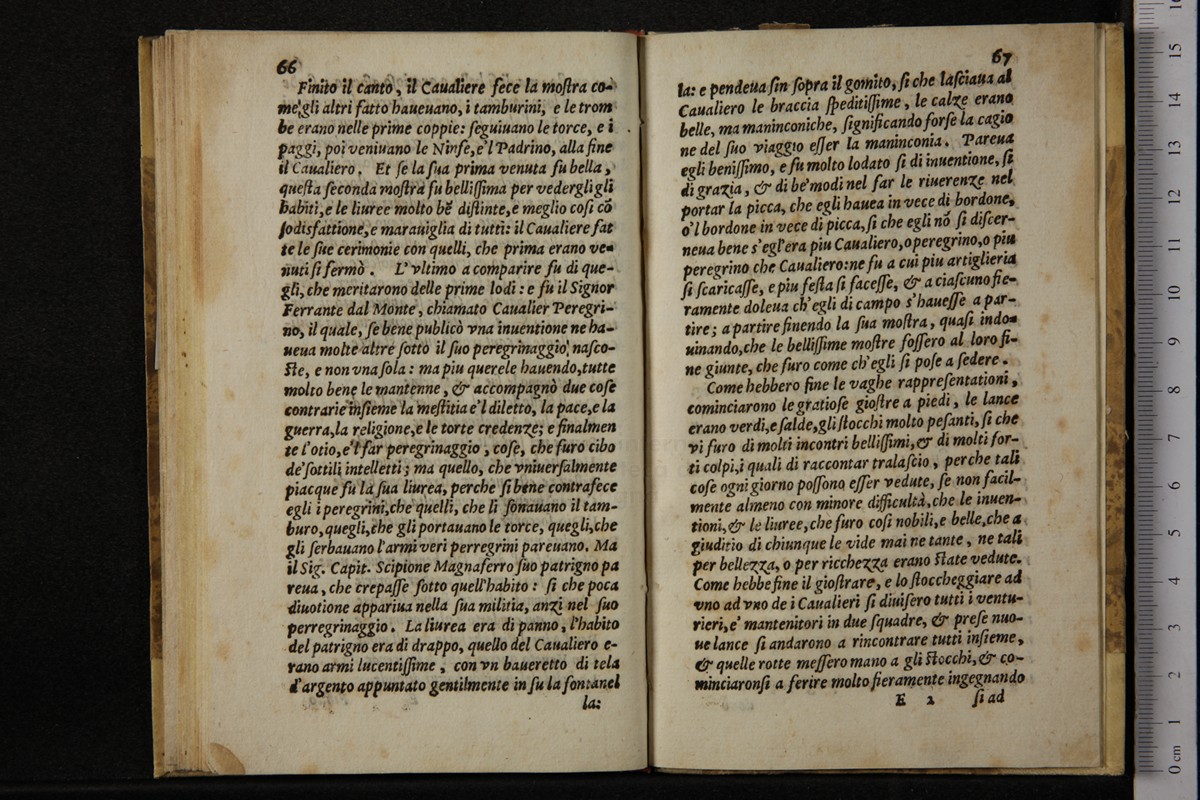 66
Finito il canto, il Caualiere fece la moſtra co-
me gli altri fatto haueuano, i tamburini, e le trom
be erano nelle prime coppie: ſeguiuano le torce, e i
paggi, poi veniuano le Ninfe, e'l Padrino, alla fine
il Caualiero. Et ſe la ſua prima venuta fu bella,
queſta ſeconda moſtra fu belliſſima per vedergli gli
habiti, e le liuree molto bē diſtinte, e meglio coſi cō
ſodisfattione, e marauiglia di tutti: il Caualiere fat
te le ſue cerimonie con quelli, che prima erano ve-
nuti ſi fermò. L'vltimo a comparire fu di que-
gli, che meritarono delle prime lodi: e fu il Signor
Ferrante dal Monte, chiamato Caualier Peregri-
no, il quale, ſe bene publicò vna inuentione ne ha-
ueua molte altre ſotto il ſuo peregrinaggio naſco-
ſte, e non vna ſola: ma piu querele hauendo, tutte
molto bene le mantenne, & accompagnò due coſe
contrarie inſieme la meſtitia e'l diletto, la pace, e la
guerra, la religione, e le torte credenze; e finalmen
te l'otio, e'l far peregrinaggio, coſe, che furo cibo
de'ſottili intelletti; ma quello, che vniuerſalmente
piacque fu la ſua liurea, perche ſi bene contrafece
egli i peregrini, che quelli, che li ſonauano il tam-
buro, quegli, che gli portauano le torce, quegli, che
gli ſerbauano l'armi veri perregrini pareuano. Ma
il Sig. Capit. Scipione Magnaferro ſuo patrigno pa
reua, che crepaſſe ſotto quell'habito: ſi che poca
diuotione appariua nella ſua militia, anzi nel ſuo
perregrinaggio. La liurea era di panno, l'habito
del patrigno era di drappo, quello del Caualiero e-
rano armi lucentiſſime, con vn baueretto di tela
d'argento appuntato gentilmente in ſu la fontanel
la:
67
la: e pendeua ſin ſopra il gomito, ſi che laſciaua al
Caualiero le braccia ſpeditiſſime, le calze erano
belle, ma maninconiche, ſignificando forſe la cagio
ne del ſuo viaggio eſſer la maninconia. Pareua
egli beniſſimo, e fu molto lodato ſi di inuentione, ſi
di grazia, & di be'modi nel far le riuerenze nel
portar la picca, che egli hauea in vece di bordone,
o'l bordone in vece di picca, ſi che egli nō ſi diſcer-
neua bene s'egl'era piu Caualiero, o peregrino, o piu
peregrino che Caualiero: ne fu a cui piu artiglieria
ſi ſcaricaſſe, e piu feſta ſi faceſſe, & a ciaſcuno fie-
ramente doleua ch'egli di campo s'haueſſe a par-
tire; a partire finendo la ſua moſtra, quaſi indo-
uinando, che le belliſſime moſtre foſſero al loro fi-
ne giunte, che furo come ch'egli ſi poſe a ſedere.
Come hebbero fine le vaghe rappreſentationi,
cominciarono le gratioſe gioſtre a piedi, le lance
erano verdi, e ſalde, gli ſtocchi molto peſanti, ſi che
vi furo di molti incontri belliſſimi, & di molti for-
ti colpi, i quali di raccontar tralaſcio, perche tali
coſe ogni giorno poſſono eſſer vedute, ſe non facil-
mente almeno con minore difficultà, che le inuen-
tioni, & le liuree, che furo coſi nobili, e belle, che a
giuditio di chiunque le vide mai ne tante, ne tali
per bellezza, o per ricchezza erano ſtate vedute.
Come hebbe fine il gioſtrare, e lo ſtoccheggiare ad
vno ad vno de i Caualieri ſi diuiſero tutti i ventu-
rieri, e' mantenitori in due ſquadre, & preſe nuo-
ue lance ſi andarono a rincontrare tutti inſieme,
& quelle rotte meſſero mano a gli ſtocchi, & co-
minciaronſi a ferire molto fieramente ingegnando
E 2 ſi ad